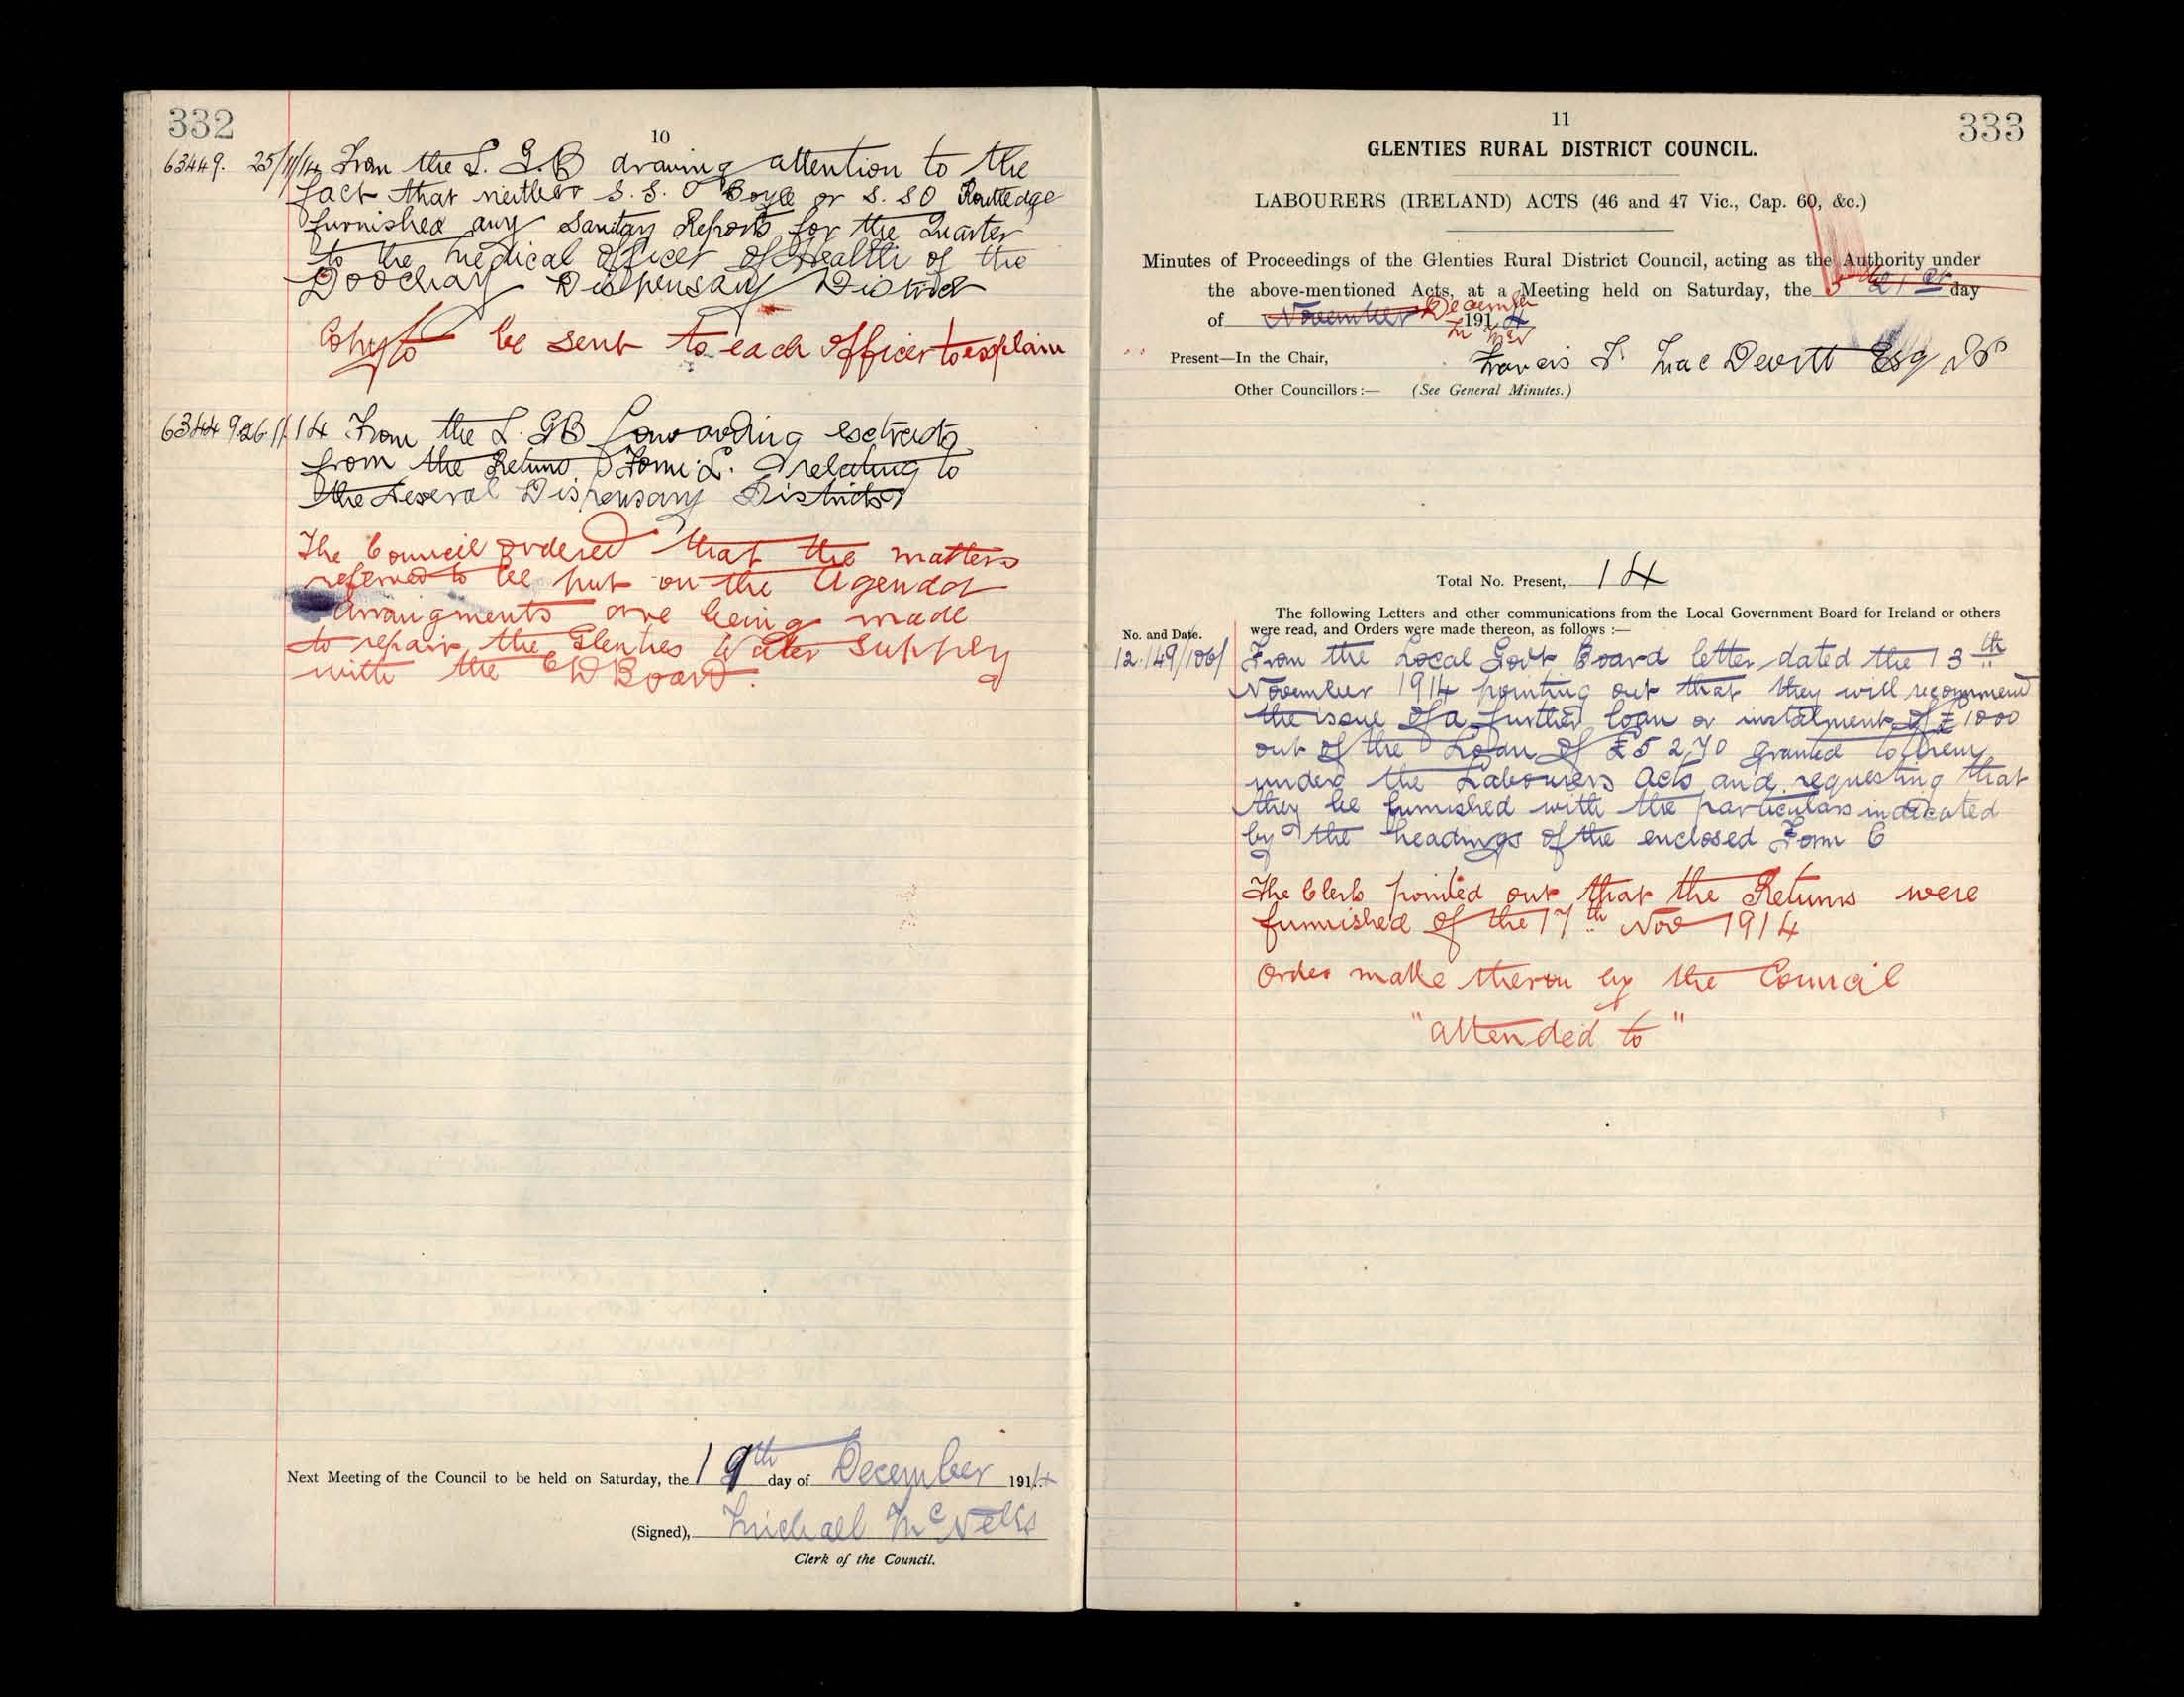 332
10
63449. 25/11/14 From the L. G. B drawing attention to the
fact that neither S. S. O Boyle or S. SO Routledge
furnished any Sanitary Reports for the Quarter
to the Medical Officer of Health of the
Doochary Dispensary District
Copy to be sent to each Officer to explain
63449 26/11/14 From the L. GB forwarding extracts
from the Returns Form L. relating to
the several Dispensary Districts
The Council ordered that the matters
referred to be put on the Agenda
Arraigments are being made
to repair the Glenties Water Supply
with the CD Board.
Next Meeting of the Council to be held on Saturday, the 19th day of December 1914
(Signed), Michael McNelis
Clerk of the Council.
11
333
GLENTIES RURAL DISTRICT COUNCIL.
LABOURERS (IRELAND) ACTS (46 and 47 Vic., Cap. 60, &c.)
Minutes of Proceedings of the Glenties Rural District Council, acting as the Authority under
the above-mentioned Acts, at a Meeting held on Saturday, the 5 21st day
of November December 1914
Present—In the Chair, Francis Mac Devitt Esq JP
Other Councillors:— (See General Minutes.)
Total No. Present, 14
The following Letters and other communications from the Local Government Board for Ireland or others
No. and Date. were read, and Orders were made thereon, as follows :—
From the Local Govt Board letter dated the 13th
November 1914 pointing out that they will recommend
the issue of a further loan or instalment of £1000
out of the Loan of £5270 granted to them
under the Labourers Acts and requesting that
they be furnished with the particulars indicated
by the headings of the enclosed Form C
The Clerk pointed out that the Returns were
furnished of the 17th Nov 1914
Order make theron by the Council
"attended to"